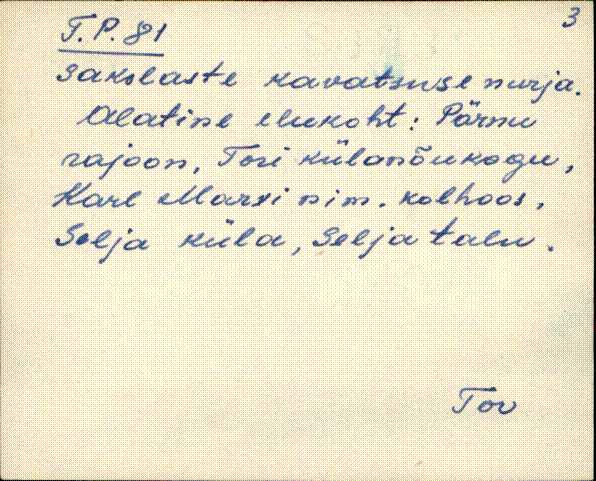 3
T.P. 81
sakslaste kavatsuse nurja.
Alatine elukoht: Pärnu
rajoon, Tori külanõukogu,
Karl Marxi nim. kolhoos,
Selja küla, Selja talu.
Tov